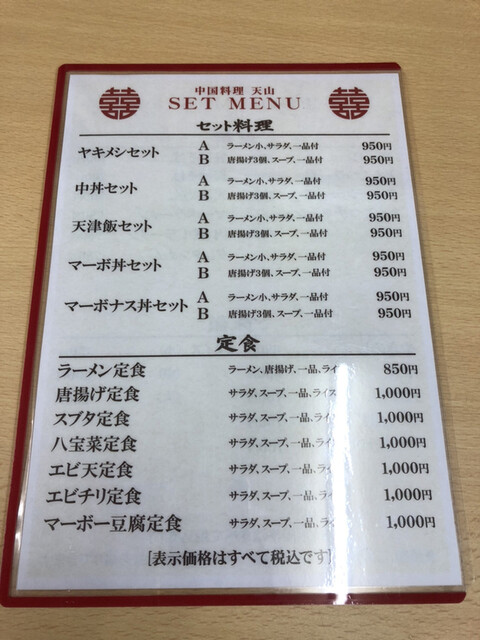 中国料理 天山
SET MENU
セット料理
ヤキメシセット A ラーメン小、サラダ、一品付 950円
B 唐揚げ3個、スープ、一品付 950円
中丼セット A ラーメン小、サラダ、一品付 950円
B 唐揚げ3個、スープ、一品付 950円
天津飯セット A ラーメン小、サラダ、一品付 950円
B 唐揚げ3個、スープ、一品付 950円
マーボ丼セット A ラーメン小、サラダ、一品付 950円
B 唐揚げ3個、スープ、一品付 950円
マーボナス丼セット A ラーメン小、サラダ、一品付 950円
B 唐揚げ3個、スープ、一品付 950円
定食
ラーメン定食 ラーメン、唐揚げ、一品、ライス 850円
唐揚げ定食 サラダ、スープ、一品、ライス 1,000円
スブタ定食 サラダ、スープ、一品、ライス 1,000円
八宝菜定食 サラダ、スープ、一品、ライス 1,000円
エビ天定食 サラダ、スープ、一品、ライス 1,000円
エビチリ定食 サラダ、スープ、一品、ライス 1,000円
マーボー豆腐定食 サラダ、スープ、一品、ライス 1,000円
[表示価格はすべて税込です]